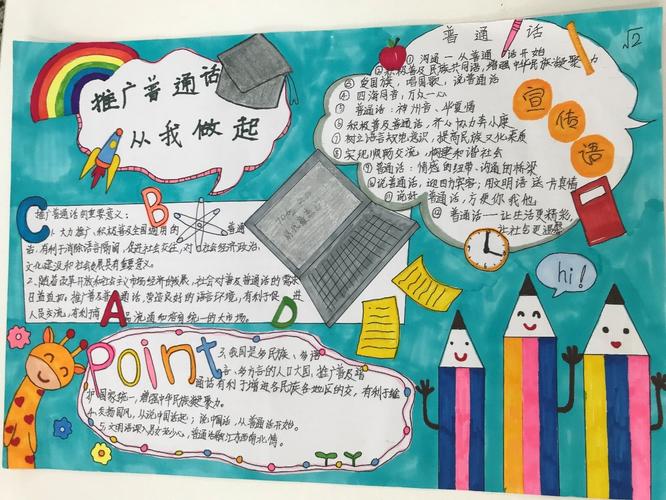 推广普通话
从我做起
普通话
√2
①沟通一从普通话开始
②积极普及民族共同语,增强中华民族凝聚力
③爱国旗,唱国歌,说普通话
④四海同音,万众一心
⑤普通话:神州音、华夏情
⑥积极普及普通话,齐心协力奔小康
⑦树立语言规范意识,提高民族文化素质
⑧实现顺畅交流,构建和谐社会
⑨普通话:情感的纽带、沟通的桥梁
⑩说普通话,迎四方宾客;用文明语送
说好普通话,方便你我他
普通话——让生活更精彩,
宣传语
C
B
A
D
推广普通话的重要意义:
1、大力推广、积极普及全国通用的普通
话,有利于消除语言隔阂,促进社会交往,对社会经济政治、
文化建设和社会发展具有重要意义。
2、随着改革开放和社会主义市场经济的发展,社会对普及普通话的需求
日益迫切。推广普及普通话,营造良好的语言环境,有利于促进
人员交流,有利于商品流通和培育统一的大市场。
hi!
Point
3、我国是多民族、多语
言、多方言的人口大国,推广普及普
通话有利于增进各民族各地区的交,有利于维
护国家统一,增强中华民族凝聚力。
从说中国话起;说中国话,从普通话开始。